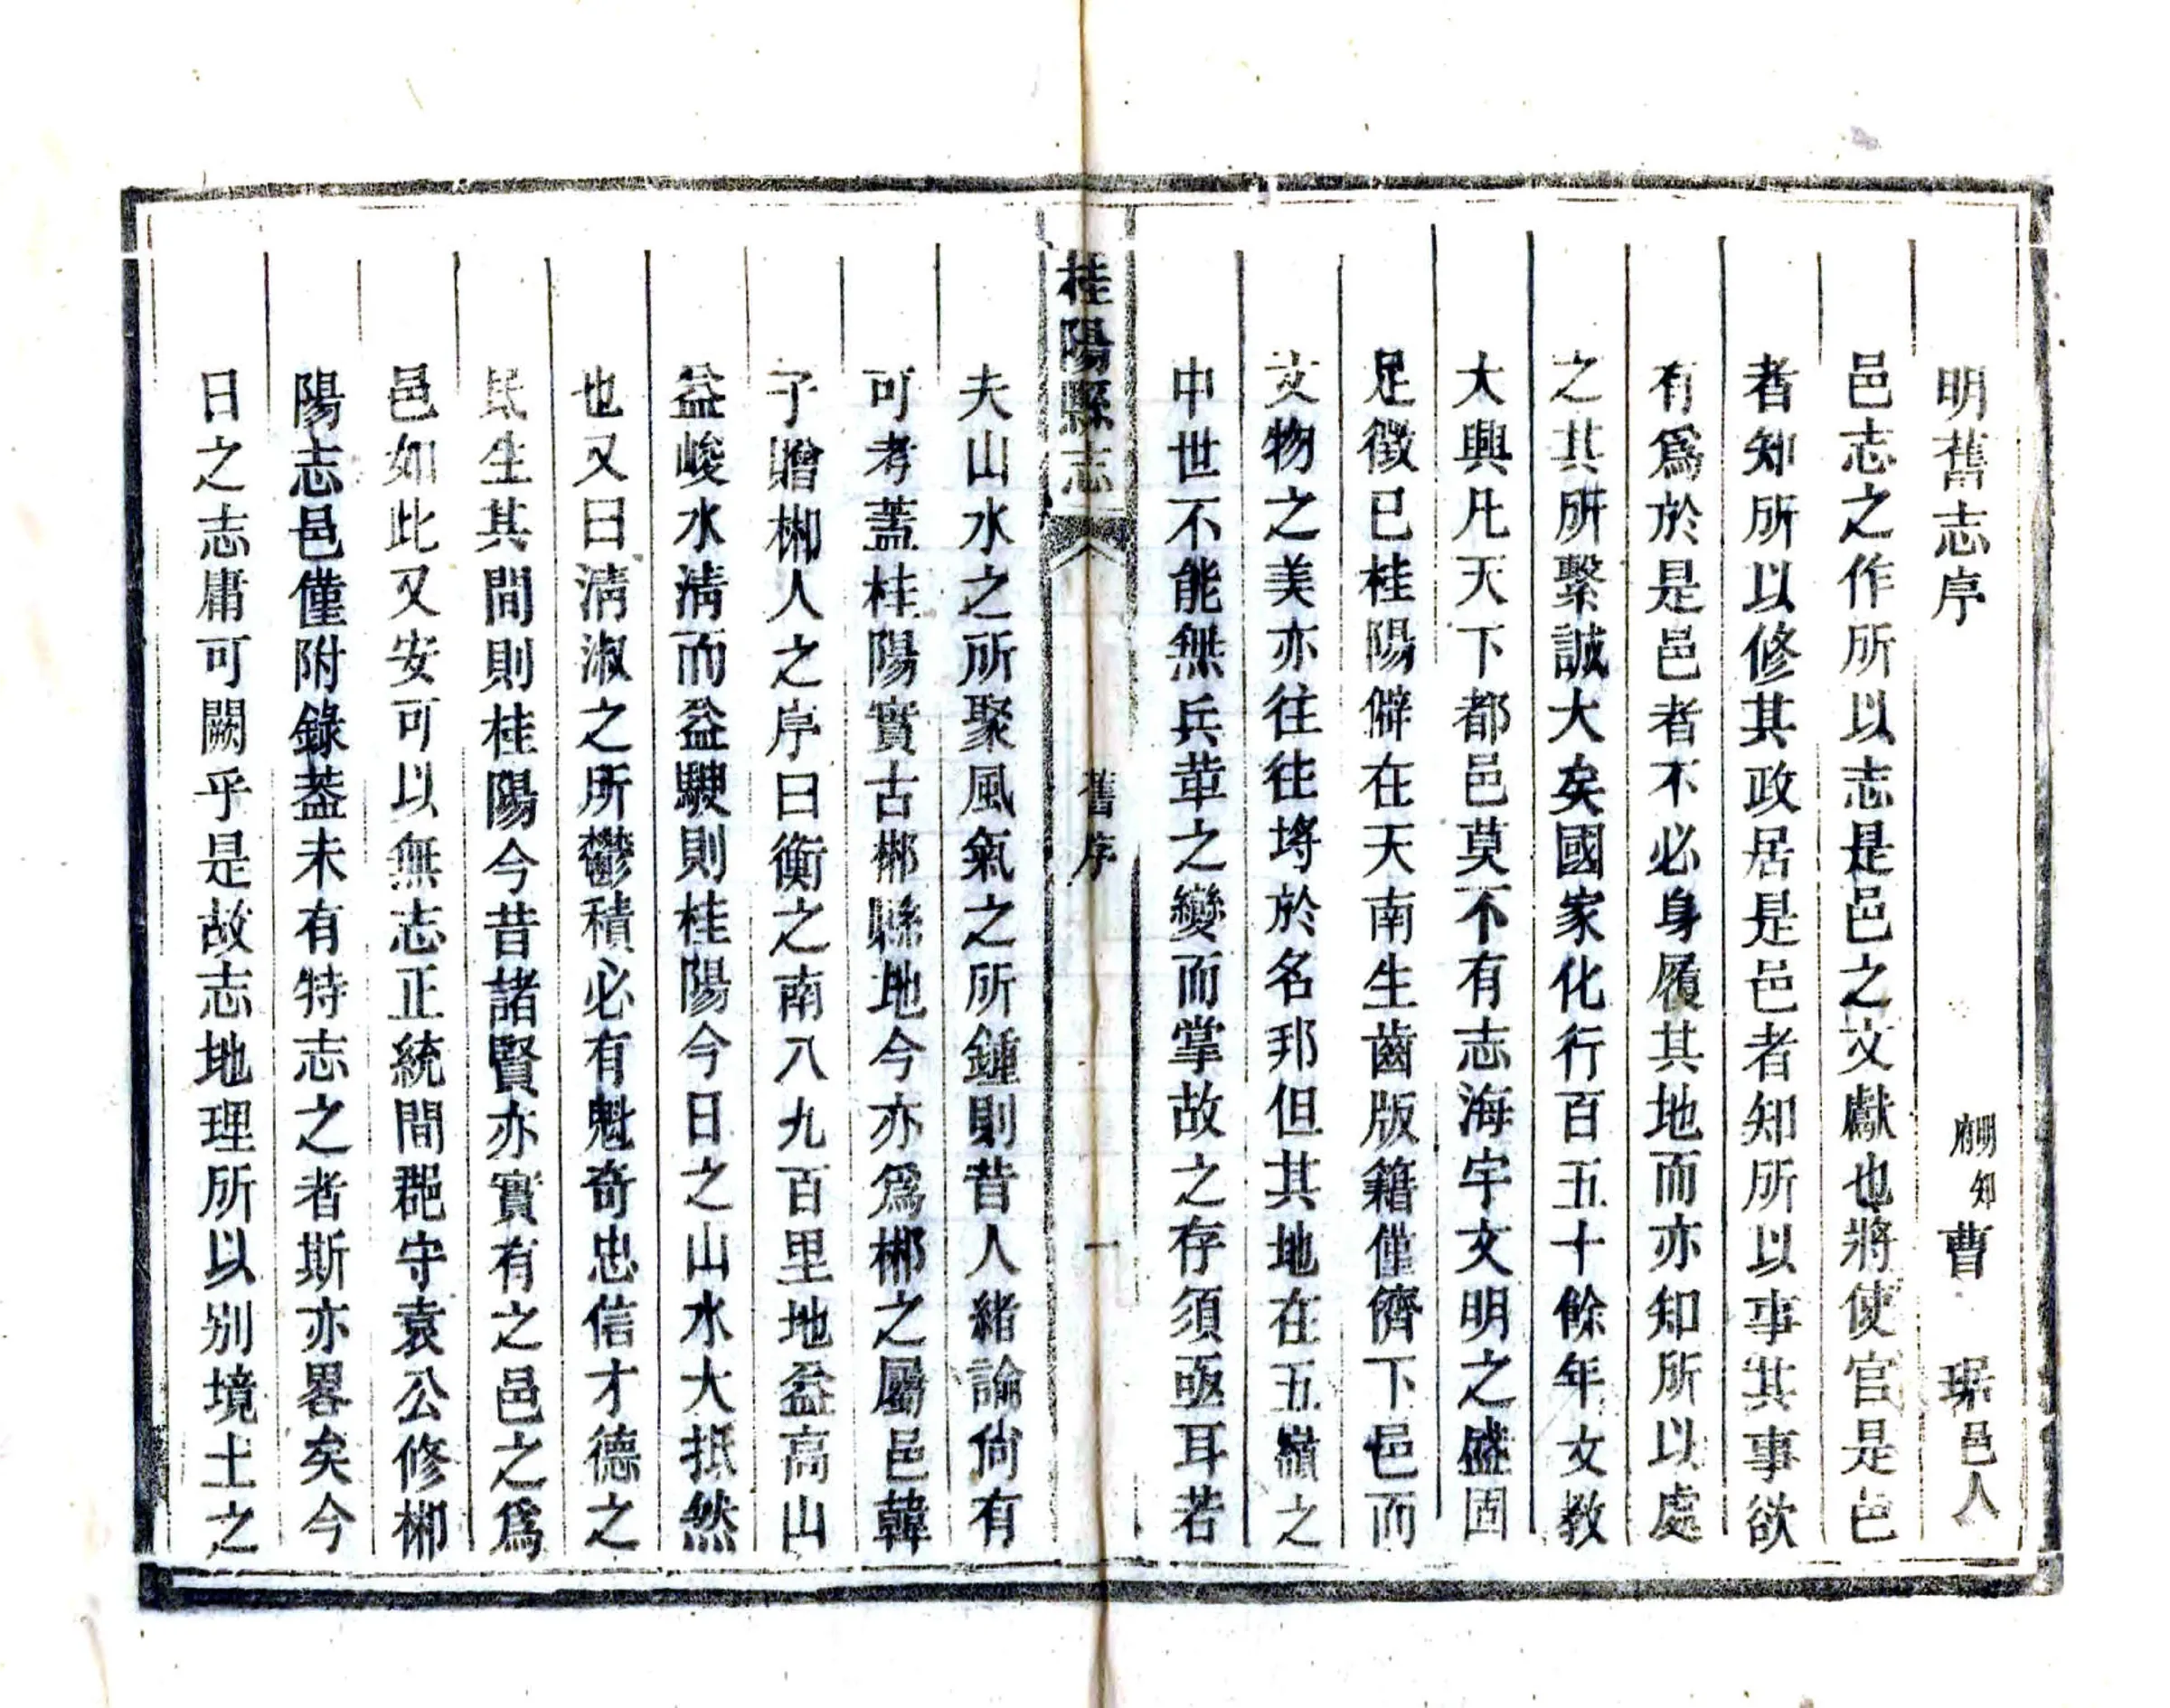 明舊志序
明知府 曹 琚 邑人
邑志之作所以志是邑之文獻也將使官是邑
者知所以修其政居是邑者知所以事其事欲
有爲於是邑者不必身履其地而亦知所以處
之其所繫誠大矣國家化行百五十餘年文教
大興凡天下都邑莫不有志海宇文明之盛固
足徵已桂陽僻在天南生齒版籍僅儕下邑而
文物之美亦往往埓於名邦但其地在五嶺之
中世不能無兵革之變而掌故之存須亟耳若
桂陽縣志
舊序
一
夫山水之所聚風氣之所鍾則昔人緒論尙有
可考蓋桂陽實古郴縣地今亦爲郴之屬邑韓
子贈郴人之序曰衡之南八九百里地益高山
益峻水淸而益駛則桂陽今日之山水大抵然
也又曰淸淑之所鬱積必有魁奇忠信才德之
民生其間則桂陽今昔諸賢亦實有之邑之爲
邑如此又安可以無志正統間郡守袁公修郴
陽志邑僅附錄葢未有特志之者斯亦畧矣今
日之志庸可闕乎是故志地理所以別境土之